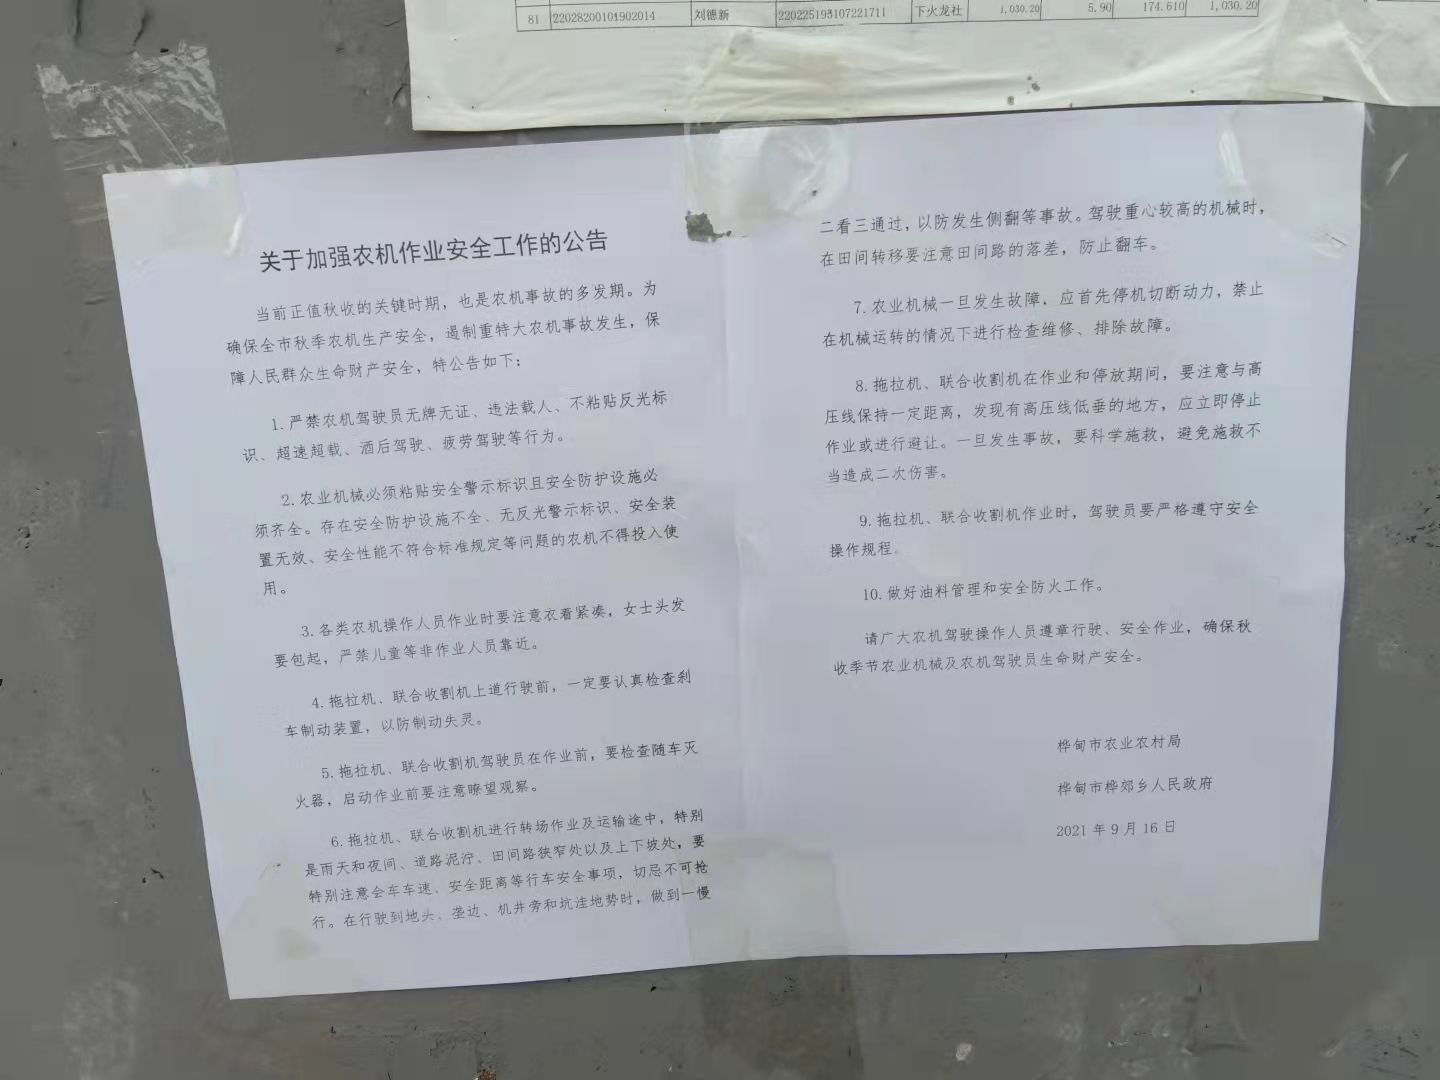 81 22028200101902014 刘德新 220225193107221711 下火龙社 1,030.20 5.90 174.610 1,030.20
关于加强农机作业安全工作的公告
当前正值秋收的关键时期，也是农机事故的多发期。为
确保全市秋季农机生产安全，遏制重特大农机事故发生，保
障人民群众生命财产安全，特公告如下：
1.严禁农机驾驶员无牌无证、违法载人、不粘贴反光标
识、超速超载、酒后驾驶、疲劳驾驶等行为。
2.农业机械必须粘贴安全警示标识且安全防护设施必
须齐全。存在安全防护设施不全、无反光警示标识、安全装
置无效、安全性能不符合标准规定等问题的农机不得投入使
用。
3.各类农机操作人员作业时要注意衣着紧凑，女士头发
要包起，严禁儿童等非作业人员靠近。
4.拖拉机、联合收割机上道行驶前，一定要认真检查刹
车制动装置，以防制动失灵。
5.拖拉机、联合收割机驾驶员在作业前，要检查随车灭
火器，启动作业前要注意瞭望观察。
6.拖拉机、联合收割机进行转场作业及运输途中，特别
是雨天和夜间、道路泥泞、田间路狭窄处以及上下坡处，要
特别注意会车车速、安全距离等行车安全事项，切忌不可抢
行。在行驶到地头、垄边、机井旁和坑洼地势时，做到一慢
二看三通过，以防发生侧翻等事故。驾驶重心较高的机械时，
在田间转移要注意田间路的落差，防止翻车。
7.农业机械一旦发生故障，应首先停机切断动力，禁止
在机械运转的情况下进行检查维修、排除故障。
8.拖拉机、联合收割机在作业和停放期间，要注意与高
压线保持一定距离，发现有高压线低垂的地方，应立即停止
作业或进行避让。一旦发生事故，要科学施救，避免施救不
当造成二次伤害。
9.拖拉机、联合收割机作业时，驾驶员要严格遵守安全
操作规程。
10.做好油料管理和安全防火工作。
请广大农机驾驶操作人员遵章行驶、安全作业，确保秋
收季节农业机械及农机驾驶员生命财产安全。
桦甸市农业农村局
桦甸市桦郊乡人民政府
2021年9月16日